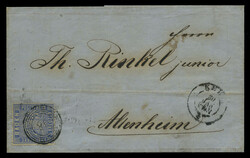 Herrn
Th. Rinkel junior
Altenheim